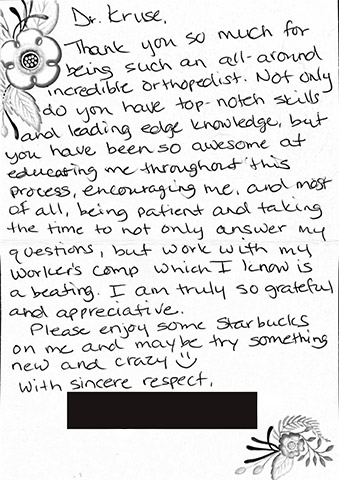 Dr. Kruse,
Thank you so much for
being such an all-around
incredible orthopedist. Not only
do you have top-notch skills
and leading edge knowledge, but
you have been so awesome at
educating me throughout this
process, encouraging me, and most
of all, being patient and taking
the time to not only answer my
questions, but work with my
worker's comp which I know is
a beating. I am truly so grateful
and appreciative.
Please enjoy some Starbucks
on me and maybe try something
new and crazy ☺
With sincere respect,